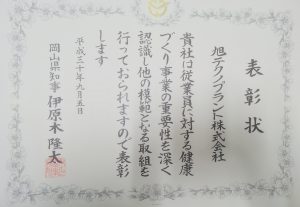 表彰状
旭テクノプラント株式会社
貴社は従業員に対する健康
づくり事業の重要性を深く
認識し他の模範となる取組を
行っておられますので表彰
します
平成三十年九月五日
岡山県知事 伊原木隆太